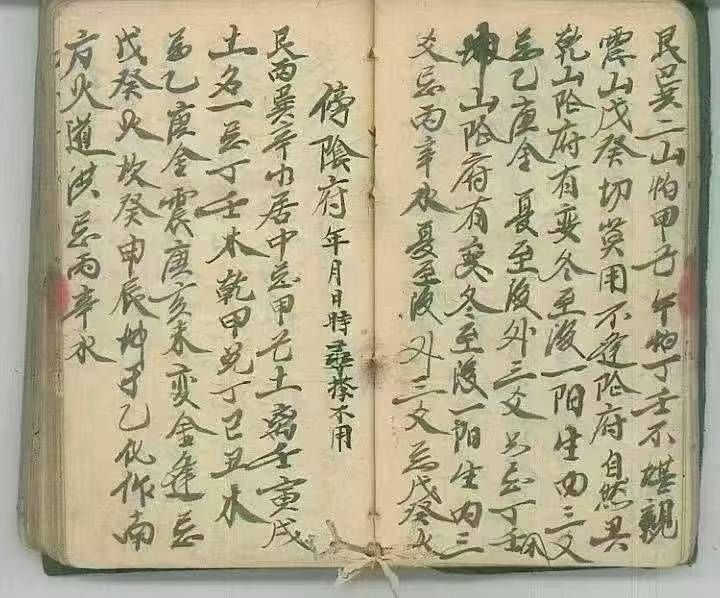 艮巽二山怕甲己午怕丁壬不堪親
震山戊癸切莫用不逢阴府自然
乾山阴府有变冬至後一阳生内三爻
忌乙庚金夏至後外三爻只忌丁壬
坤山阴府有变冬至後一阳生内三
爻忌丙辛水夏至後外三爻忌戊癸火
停陰府年月日時尋搽不用
艮丙巽辛巾居中忌甲己土离壬寅戌
土名一忌丁壬木乾甲兑丁巳丑木
忌乙庚金震庚亥未变金逢忌
戊癸火坎癸申辰坤乙化作南
方火道洪忌丙辛水